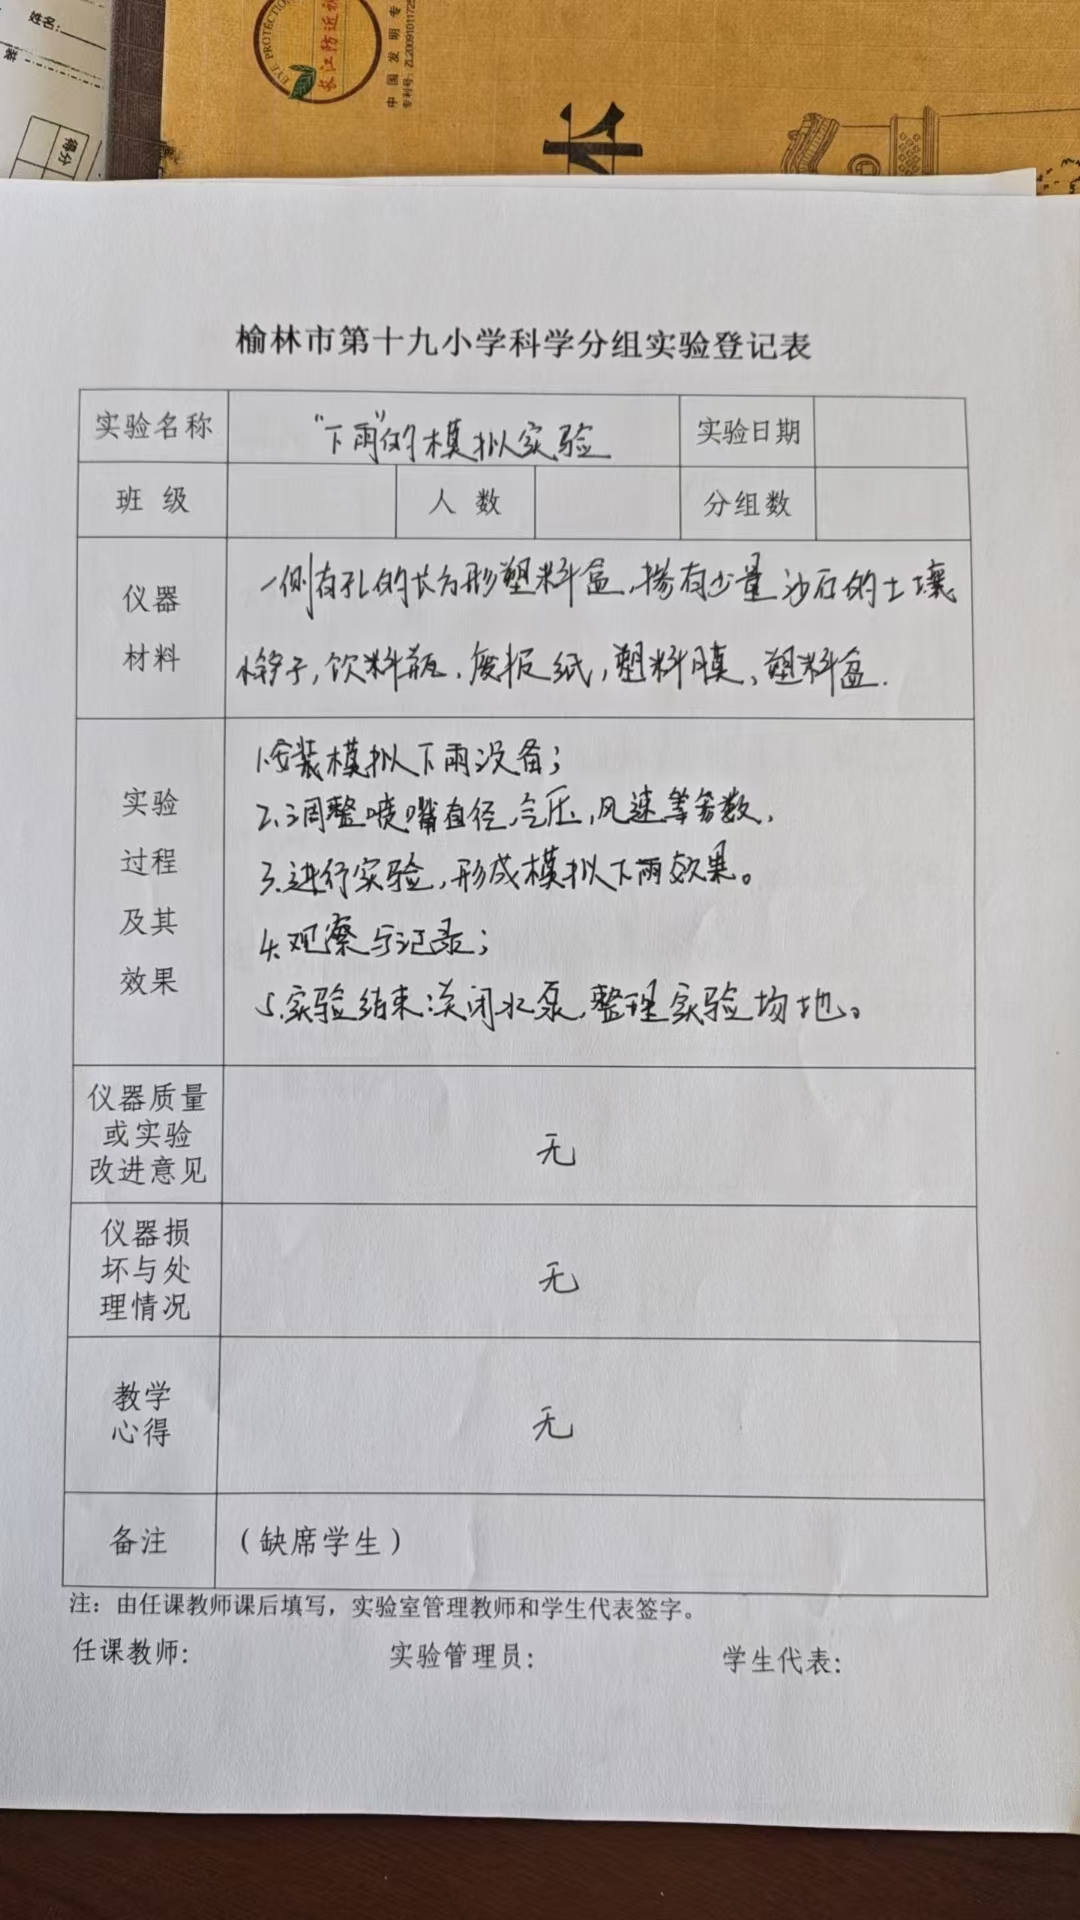 姓名:
装
得分
EYE PROTECTION
长江防近视
中国发明专
专利号: ZL2009101172
本
榆林市第十九小学科学分组实验登记表
实验名称 “下雨”的模拟实验 实验日期
班 级 人 数 分组数
仪器材料
一侧有孔的长方形塑料盒,掺有少量沙石的土壤
小铲子,饮料瓶、废报纸,塑料膜、塑料盒.
实验过程及其效果
1.安装模拟下雨设备;
2.调整喷嘴直径,气压,风速等参数,
3.进行实验,形成模拟下雨效果。
4.观察与记录;
5.实验结束:关闭水泵,整理实验场地。
仪器质量或实验改进意见 无
仪器损坏与处理情况 无
教学心得 无
备注 (缺席学生)
注：由任课教师课后填写，实验室管理教师和学生代表签字。
任课教师: 实验管理员: 学生代表: